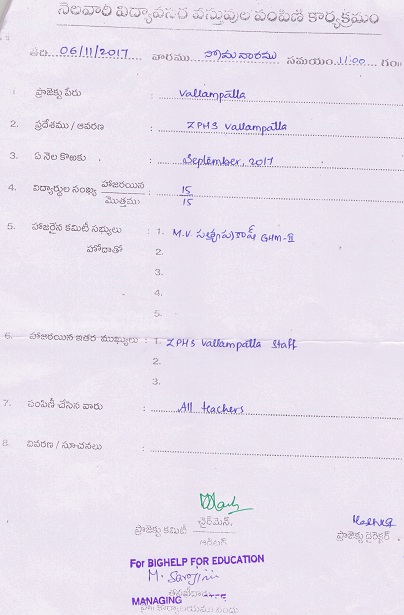 నెలవారి విద్యావసర వస్తువుల పంపిణి కార్యక్రమం
తేది 06/11/2017 వారము సోమవారము సమయం 11:00 గం॥
1. ప్రాజెక్టు పేరు : Vallampatla
2. ప్రదేశము / ఆవరణ : ZPHS Vallampatla
3. ఏ నెల కొఱకు : September, 2017
4. విద్యార్థుల సంఖ్య హాజరయిన : 15
మొత్తము 15
5. హాజరైన కమిటీ సభ్యులు : 1. M.V. సత్యప్రకాష్ GHM-II
హోదాతో 2.
3.
4.
5.
6. హాజరయిన ఇతర ముఖ్యులు : 1. ZPHS Vallampatla Staff
2.
3.
7. పంపిణీ చేసిన వారు : All teachers
8. వివరణ / సూచనలు :
ప్రాజెక్టు కమిటీ ఛైర్మెన్.
ప్రాజెక్టు డైరెక్టర్
For BIGHELP FOR EDUCATION
M. Sarojini
MANAGING